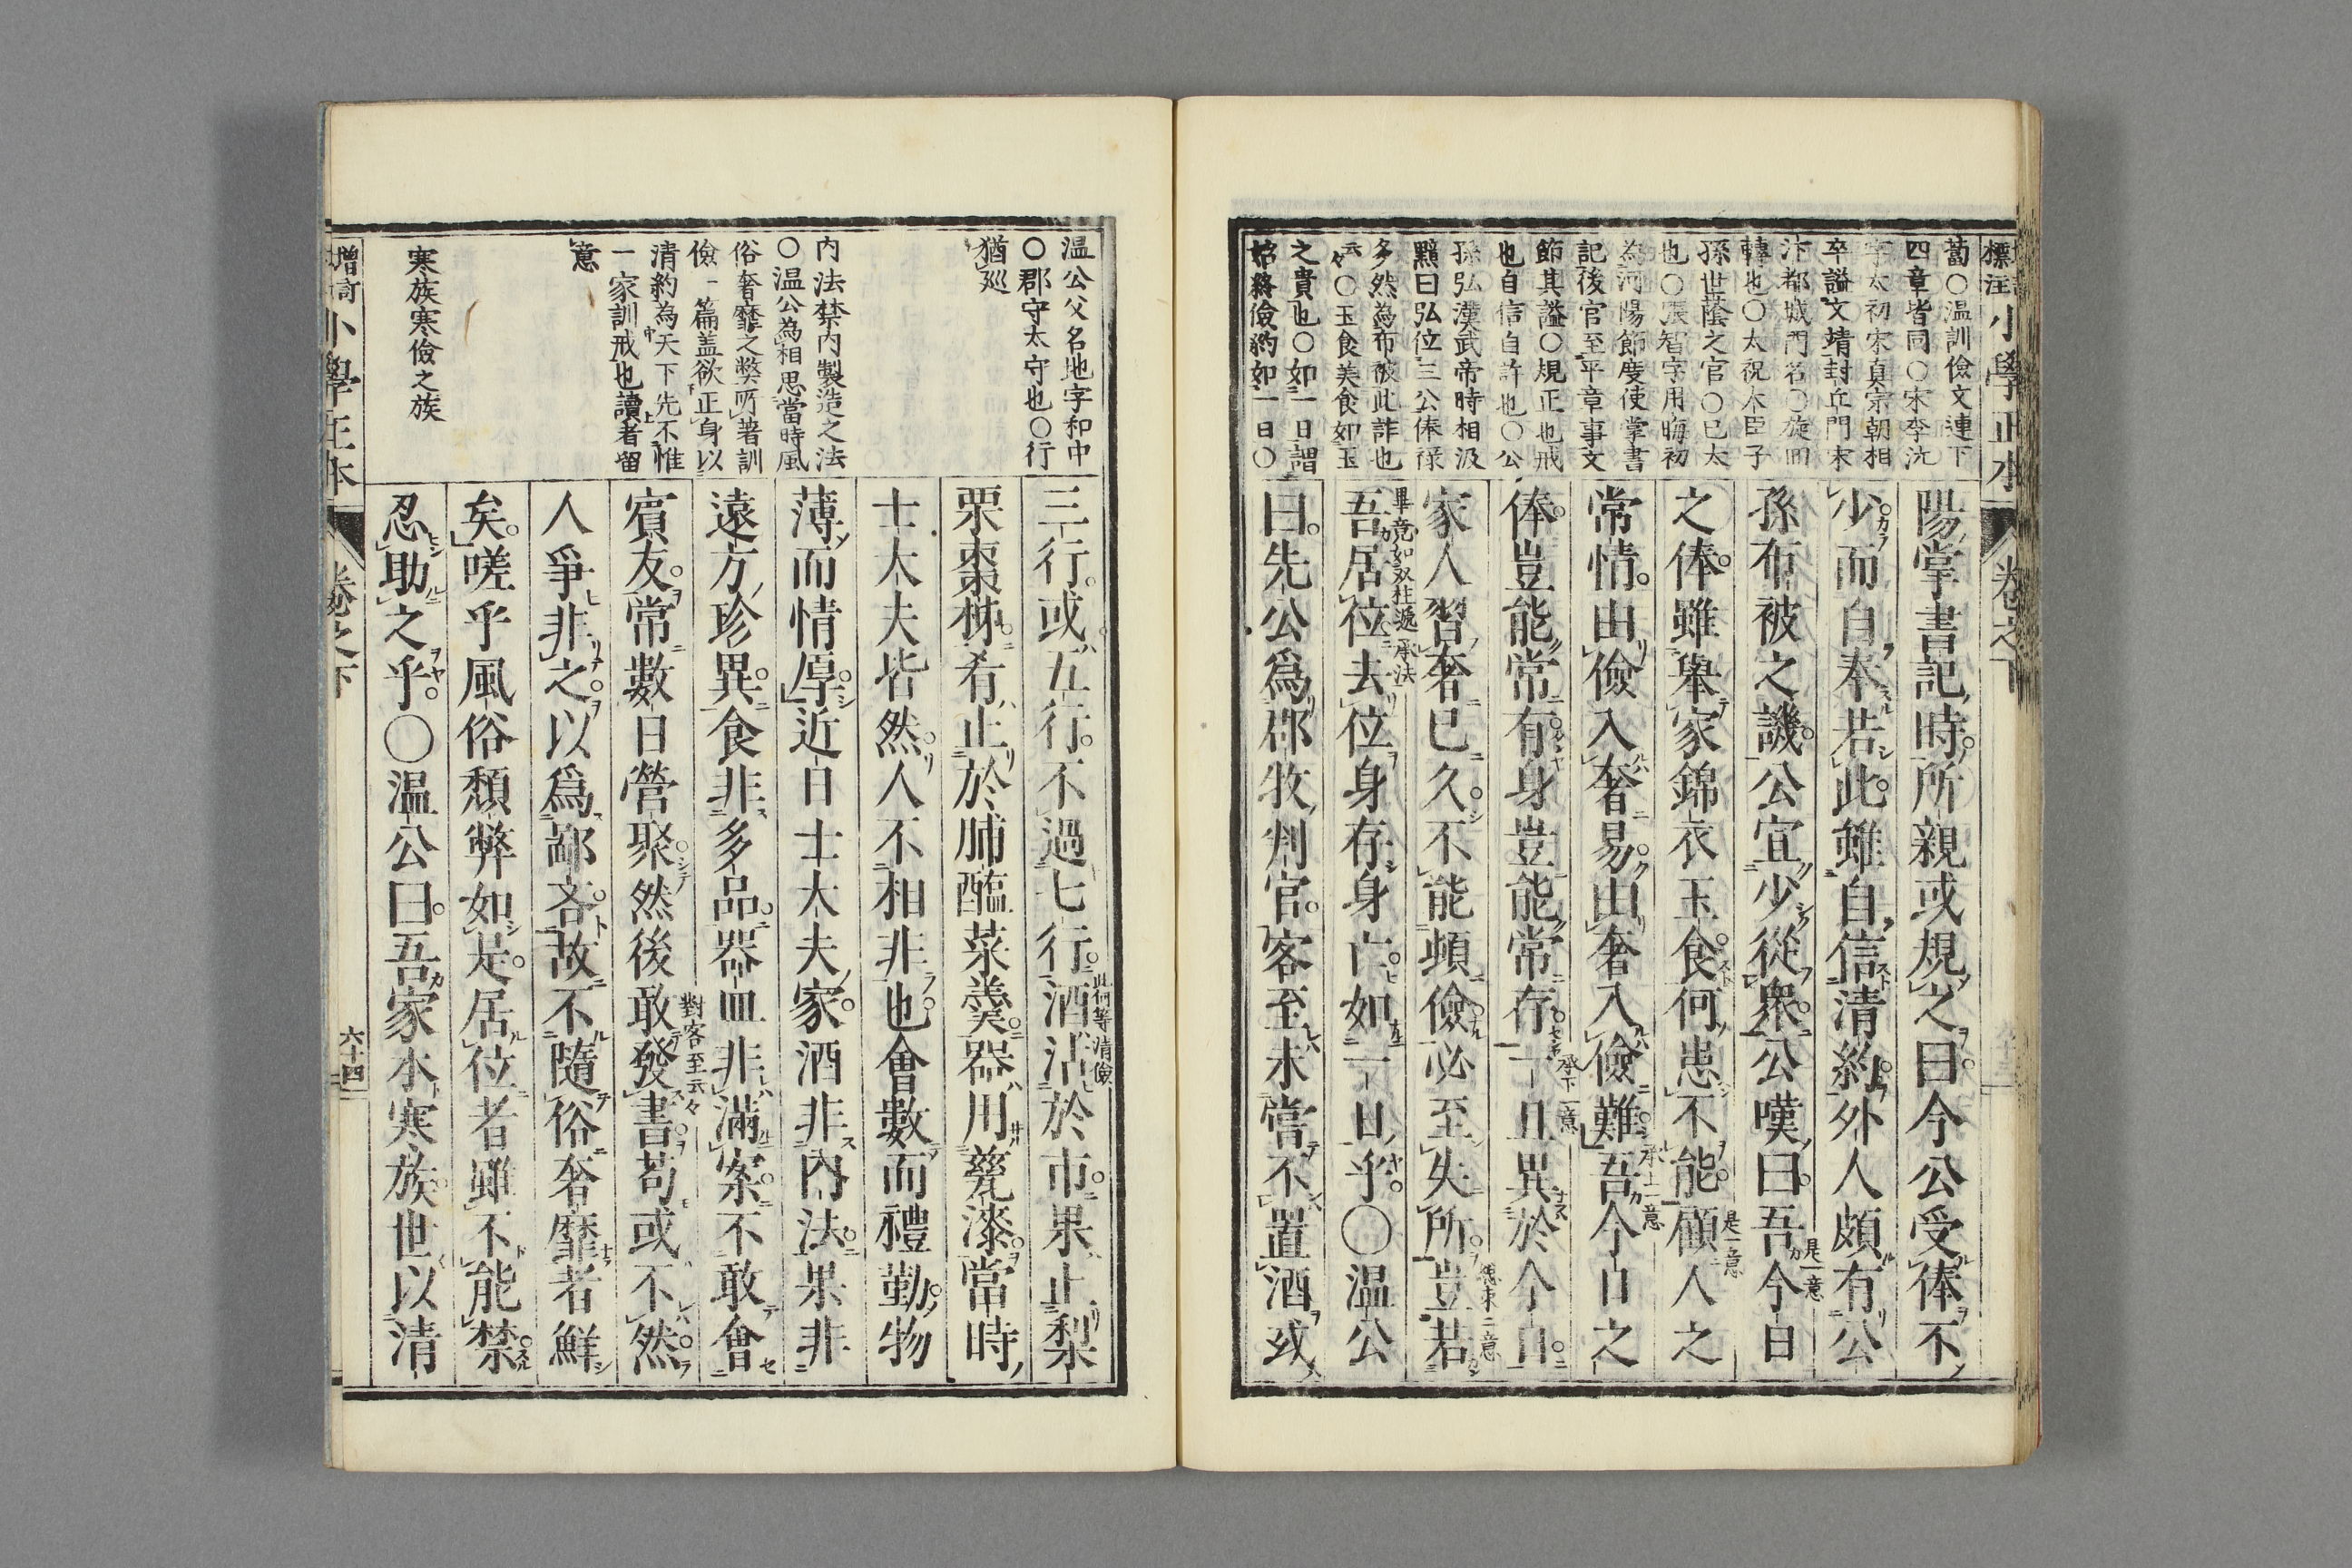 標注
小學正本
卷之下
蔔○温訓儉文連下
四章皆同○宋李沆
字太初宋真宗朝相
卒謚文靖封丘門宋
汴都城門名○旋回
轉也○太祝大臣子
孫世蔭之官○已太
也○張智字用晦初
為河陽節度使掌書
記後官至平章事文
節其謚○規正也戒
也自信自許也○公
孫弘漢武帝時相汲
黯曰弘位三公俸祿
多然為布被此詐也
云々○玉食美食如玉
之貴也○如一日謂
始終儉約如一日○
陽掌書記時所親或規之曰今公受俸不
少而自奉若此雖自信清約外人頗有公
孫布被之譏公宜少從衆公嘆曰吾今日
是一意
之俸雖擧家錦衣玉食何患不能顧人之
是一意
常情由儉入奢易由奢入儉難吾今日之
承上一意
俸豈能常有身豈能常存一旦異於今日
承下一意
家人習奢已久不能頓儉必至失所豈若
總束二意
吾居位去位身存身亡如一日乎○温公
畢竟如双柱遞承法
曰先公爲郡牧判官客至未嘗不置酒或
温公父名池字和中
○郡守太守也○行
猶巡
内法禁内製造之法
○温公為相思當時風
俗奢靡之弊所著訓
儉一篇盖欲正身以
清約為天下先不惟
一家訓戒也讀者留
意
寒族寒儉之族
三行或五行不過七行酒沽於市果止梨
此何等清儉
栗棗柹肴止於脯醢菜羹器用甆漆當時
士大夫皆然人不相非也會數而禮勤物
薄而情厚近日士大夫家酒非内法果非
遠方珍異食非多品器皿非滿案不敢會
賓友常數日營聚然後敢發書苟或不然
對客至云々
人爭非之以爲鄙吝故不隨俗奢靡者鮮
矣嗟乎風俗頹弊如是居位者雖不能禁
忍助之乎○温公曰吾家本寒族世以清
小學正本
卷之下
六十四